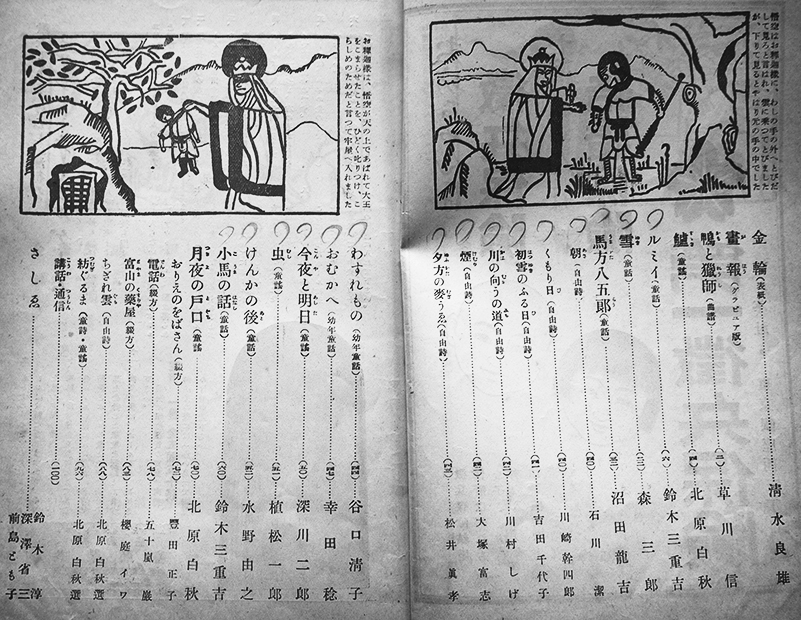 悟空はお釋迦樣に、わしの手の外へとびだ
して見ろと言はれ、雲に乘つてとびました
が、下りて見るとやはり元の手の中でした
金輪(表紙)……淸水良雄
畫報(グラビュア版)
鴨と獵師(曲譜)……(二)草川信
鱸(童謠)……(四)北原白秋
ルミイ(童話)……(六)鈴木三重吉
雪(童話)……(二二)森三郎
馬方八五郞(童話)……(三二)沼田龍吉
朝(自由詩)……石川潔
くもり日(自由詩)……(四〇)川崎幹四郎
初雪のふる日(自由詩)……(四一)吉田千代子
川の向うの道(自由詩)……川村しげ
煙(自由詩)……(四二)大塚富志
夕方の麥うゑ(自由詩)……(四三)松井眞孝
お釋迦樣は、悟空が天の上であばれて大王
をこまらせたことを、ひどく叱りつけ、こ
らしめのためだと言つて牢屋へ入れました
わすれもの(幼年童話)……(四四)谷口淸子
おむかへ(幼年童話)……(四七)幸田稔
今夜と明日(童話)……(五〇)深川二郎
虫(童謠)……(五一)植松一郎
けんかの後(童話)……(五二)水野由之
小馬の話(童話)……(六〇)鈴木三重吉
月夜の戸口(童謠)……(七〇)北原白秋
おりえのをばさん(綴方)……(七二)豐田正子
電話(綴方)……(七八)五十嵐巖
富山の藥屋(綴方)……(八三)櫻庭イワ
ちぎれ雲(自由詩)……(八八)北原白秋選
紡ぐるま(童詩・童謠)……(九六)北原白秋選
講話・通信……(一〇〇)
さしゑ……鈴木淳
深澤省三
前島とも子